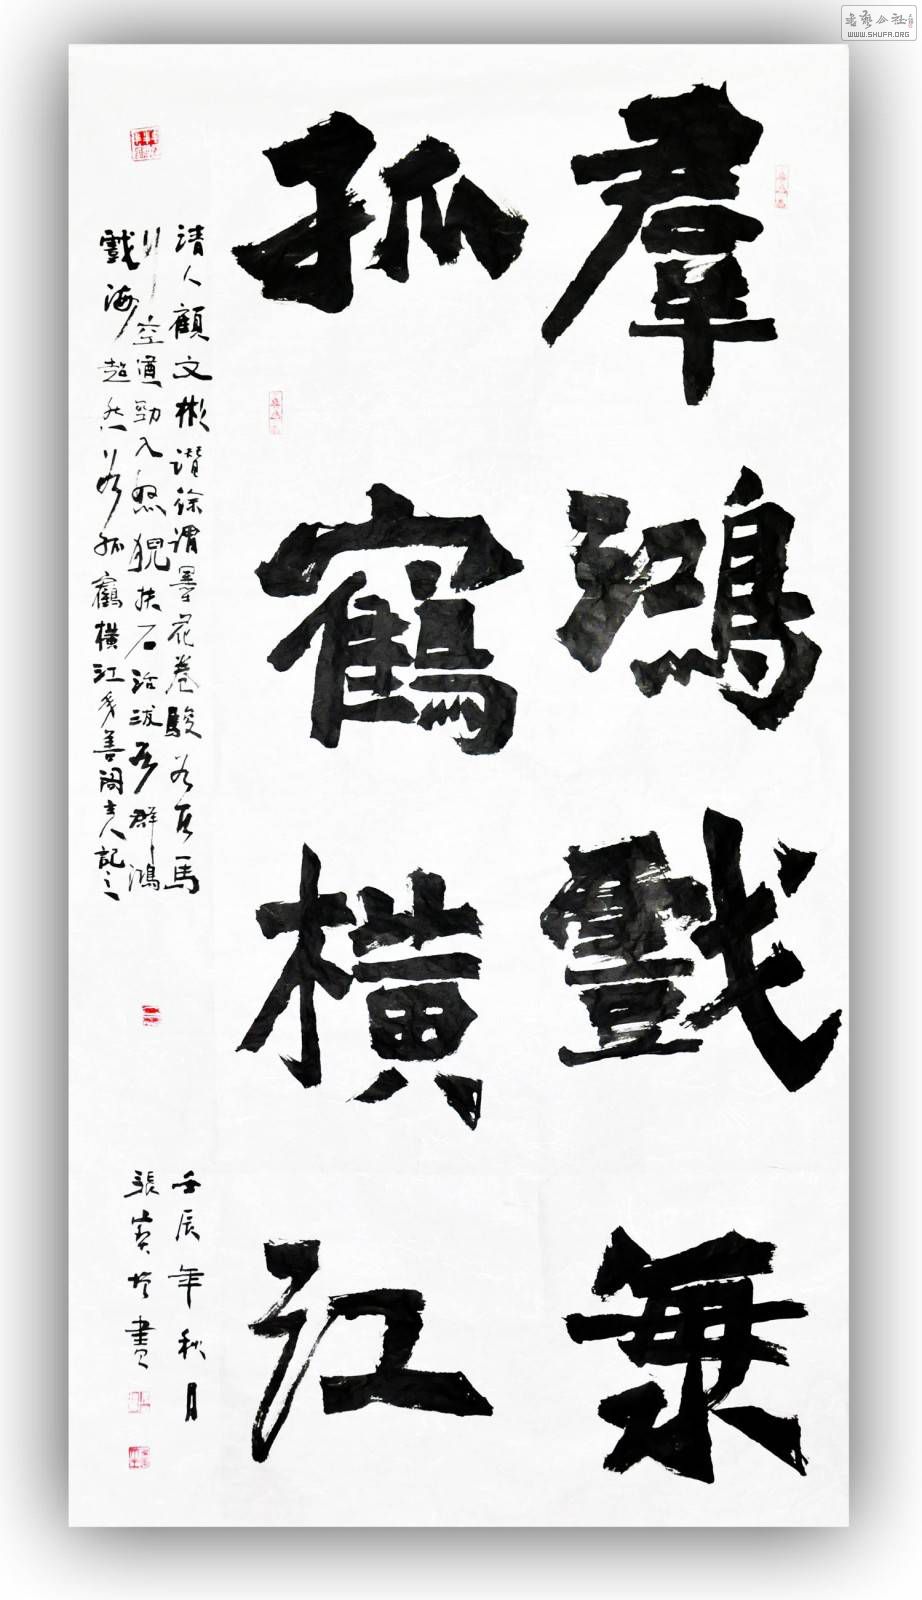 書藝公社
WWW.SHUFA.ORG
羣鴻戲海
孤鶴橫江
清人顧文彬讚徐渭墨花卷駿若天馬
行空遒勁入怒猊抉石活潑若群鴻
戲海超然若孤鶴橫江美善閣主人記之
壬辰年秋月
張寶書